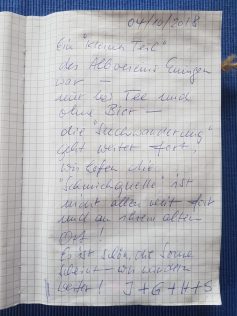 04/10/2018
Ein "kleiner Teil"
des Albvereins Eningen
war –
nur bei Tee und
ohne Bier –
die "Suchwanderung"
geht weiter fort,
wir hoffen die
"Schmiechquelle" ist
nicht allzu weit fort
und an ihrem alten
Ort!
Es ist schön, die Sonne
scheint – wir wandern
weiter! I + G + H + S